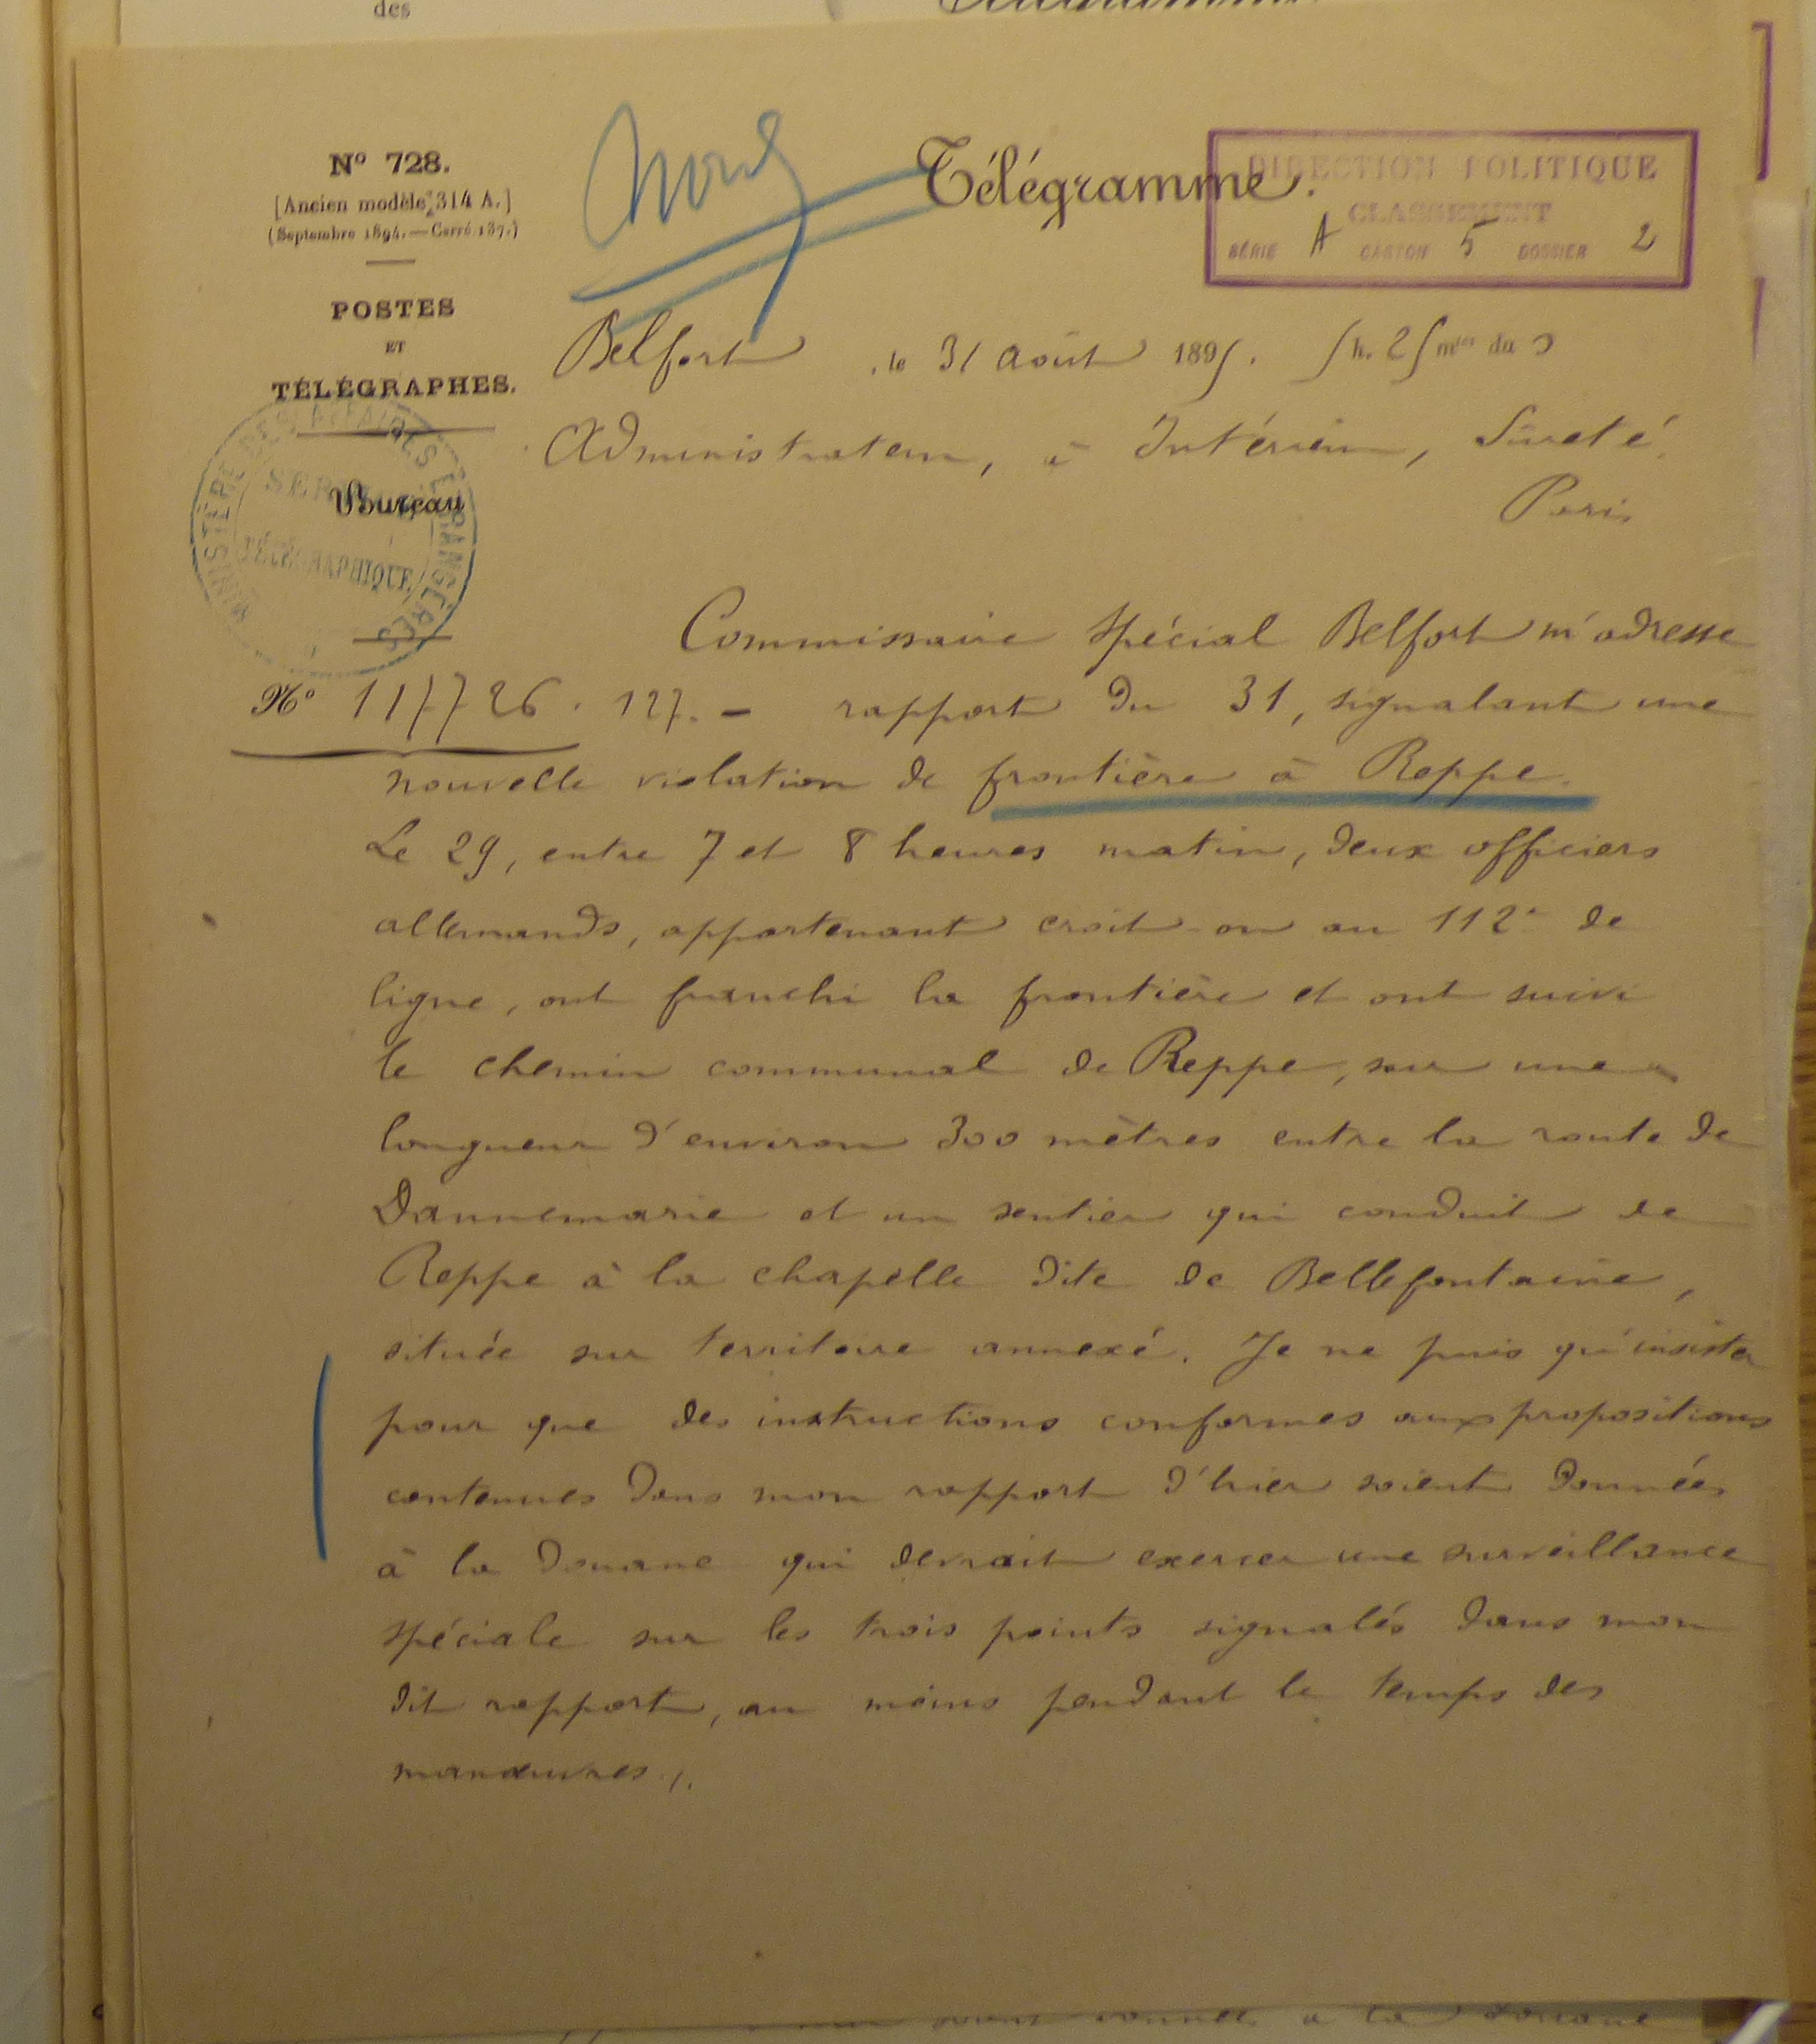 des
Nº 728.
[Ancien modèle 314 A.]
(Septembre 1894. — Carré 137.)
POSTES
ET
TÉLÉGRAPHES.
Bureau
MINISTÈRE DES AFFAIRES ÉTRANGÈRES
SERVICE
TÉLÉGRAPHIQUE
Nord
Télégramme.
DIRECTION POLITIQUE
CLASSEMENT
SÉRIE A CARTON 5 DOSSIER 2
Belfort, le 31 août 1895. 5 h. 25 mtes du s
Administrateur, à Intérieur, Sûreté.
Paris
Commissaire spécial Belfort m'adresse
Nº 117726. 127. — rapport du 31, signalant une
nouvelle violation de frontière à Reppe.
Le 29, entre 7 et 8 heures matin, deux officiers
allemands, appartenant croit-on au 112e de
ligne, ont franchi la frontière et ont suivi
le chemin communal de Reppe, sur une
longueur d'environ 300 mètres entre la route de
Dannemarie et un sentier qui conduit de
Reppe à la chapelle dite de Bellefontaine,
située sur territoire annexé. Je ne puis qu'insister
pour que des instructions conformes aux propositions
contenues dans mon rapport d'hier soient données
à la Douane qui devrait exercer une surveillance
spéciale sur les trois points signalés dans mon
dit rapport, au moins pendant le temps des
manœuvres ./.
à la douane